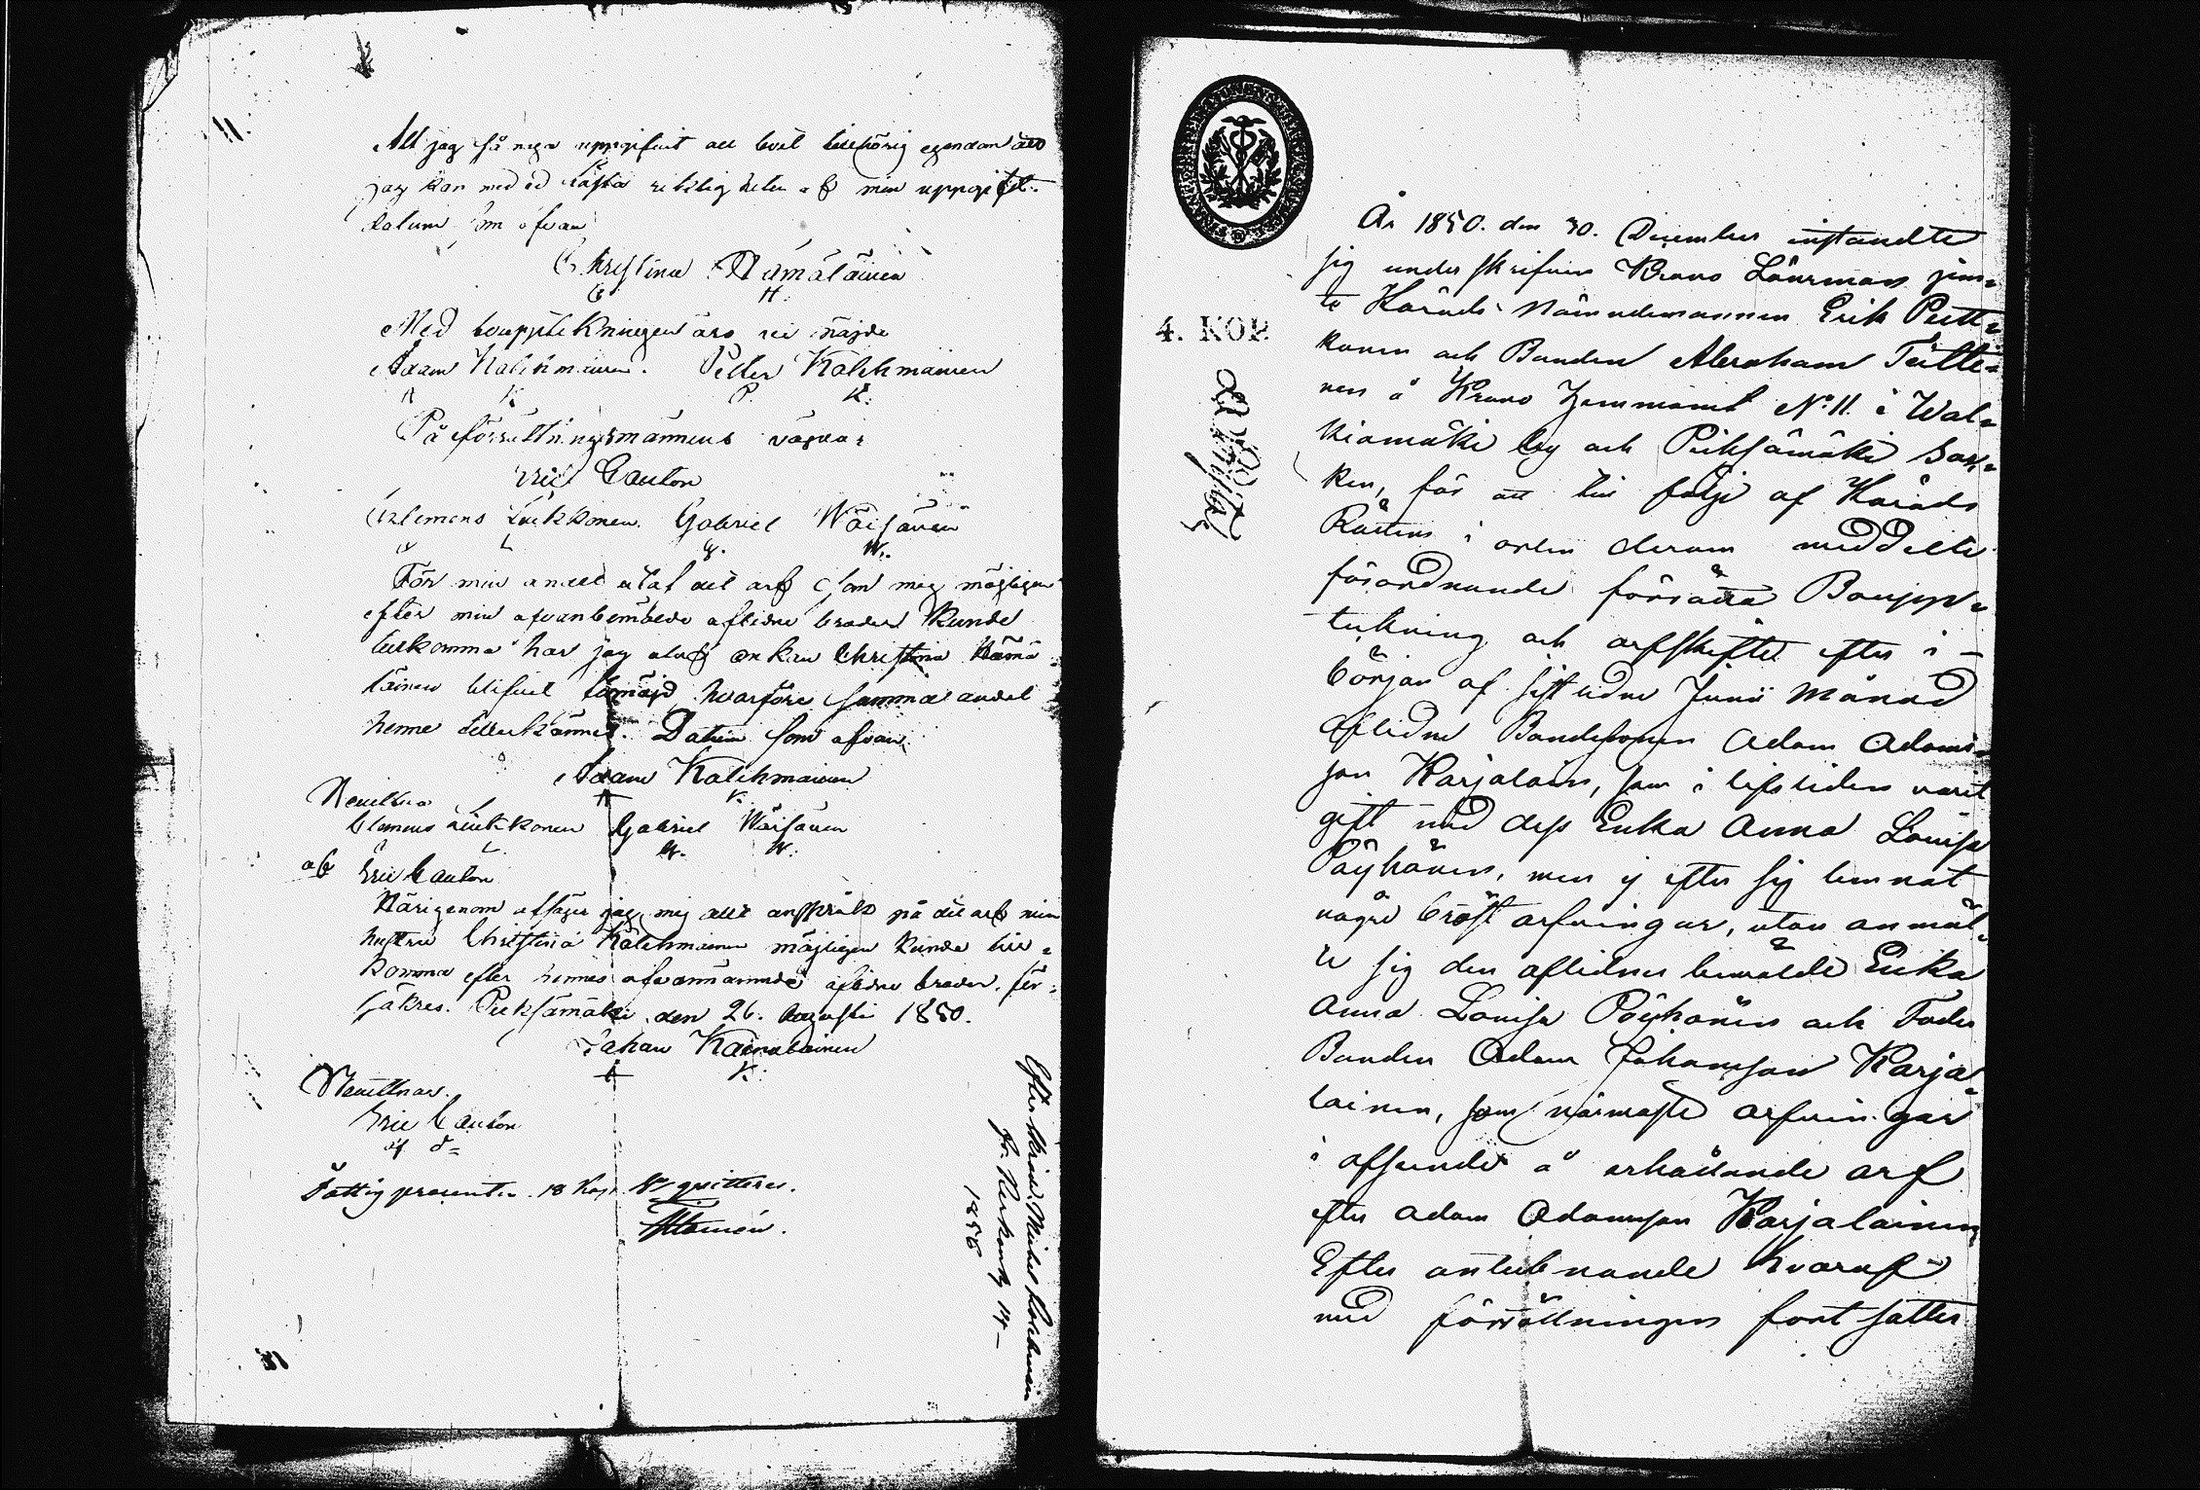 11.
Att jag så noga uppgifvit all boet tillhörig egendom att
jag kan med ed fästa riktigheten af min uppgift.
datum som ofvan
Christina Hämäläinen
C H.
Med bouppteckningen äro vi nöjde
Adam Kalckmainen. Petter Kolehmainen
A K P. K.
På förrättningsmännens vägnar
Eric Cauton
Clemens Luckkonen. Gabriel Wäisänen
C L G. W.
För min andel utaf det arf som mig möjligen
efter min ofvanbemälde aflidne broder kunde
tillkomma har jag utaf enkan Christina Hämä-
läinen blifvit förnöjd hvarföre samma andel
henne tillerkännes. Datum som ofvan.
Adam Kolehmainen
A K.
Bevittna
Clemens Luckkonen Gabriel Wäisänen
C L G. W.
af Eric Cauton
Härigenom afsäger jag mig allt anspråk på det arf min
hustru Christina Kolehmainen möjligen kunde till-
komma efter hennes ofvannämnde aflidne broder, för-
säkras. Pieksämäki den 26. Augusti 1850.
Johan Kainulainen
K.
Bevittnar.
Eric Cauton
Fattig procenten 18 Kop. Sr quitteras.
Efter Skrädd. Mickel Kolehmain
1850
4. KOP.
År 1850. den 30. December instandte
sig underskrifven Krono Länsman jem-
te Härads Nämndemannen Erik Pertt-
konen och Bonden Abraham Teitti-
nen å Krono hemmanet No 11. i Wal-
kiamäki by och Pieksämäki Soc-
ken, för att till följe af Härads
Rättens i orten derom meddelte
förordnande förrätta Boupp-
teckning och arfskifte efter i
början af sistlidne Junii Månad
aflidne Bondesonen Adam Adams-
son Karjalain, som i lifstiden varit
gift med dess Enka Anna Lovisa
Pöyhönen, men ej efter sig lemnat
några bröst arfvingar, utan anmäl-
te sig den aflidnes bemälde Enka
Anna Lovisa Pöyhönen och Fader
Bonden Adam Johansson Karja-
lainen, som närmaste arfvingar
i afseende å erhållande arf
efter Adam Adamsson Karjalainen
Efter antecknande hvaraf
med förrättningen fortsattes